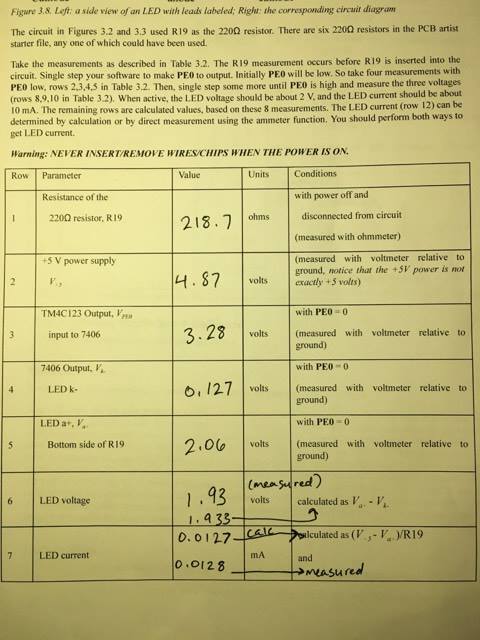 Figure 3.8. Left: a side view of an LED with leads labeled; Right: the corresponding circuit diagram
The circuit in Figures 3.2 and 3.3 used R19 as the 220Ω resistor. There are six 220Ω resistors in the PCB artist
starter file, any one of which could have been used.
Take the measurements as described in Table 3.2. The R19 measurement occurs before R19 is inserted into the
circuit. Single step your software to make PE0 to output. Initially PE0 will be low. So take four measurements with
PE0 low, rows 2,3,4,5 in Table 3.2. Then, single step some more until PE0 is high and measure the three voltages
(rows 8,9,10 in Table 3.2). When active, the LED voltage should be about 2 V, and the LED current should be about
10 mA. The remaining rows are calculated values, based on these 8 measurements. The LED current (row 12) can be
determined by calculation or by direct measurement using the ammeter function. You should perform both ways to
get LED current.
Warning: NEVER INSERT/REMOVE WIRES/CHIPS WHEN THE POWER IS ON.
Row Parameter Value Units Conditions
Resistance of the with power off and
1 220Ω resistor, R19 218.7 ohms disconnected from circuit
(measured with ohmmeter)
+5 V power supply (measured with voltmeter relative to
ground, notice that the +5V power is not
2 V+5 4.87 volts exactly +5 volts)
TM4C123 Output, VPE0 with PE0 = 0
3 input to 7406 3.28 volts (measured with voltmeter relative to
ground)
7406 Output, Vk- with PE0 = 0
4 LED k- 0.127 volts (measured with voltmeter relative to
ground)
LED a+, Va+ with PE0 = 0
5 Bottom side of R19 2.06 volts (measured with voltmeter relative to
ground)
(measured)
6 LED voltage 1.93 volts calculated as Va+ - Vk-
1.933
0.0127 calc calculated as (V+5 - Va+)/R19
7 LED current mA and
0.0128 measured